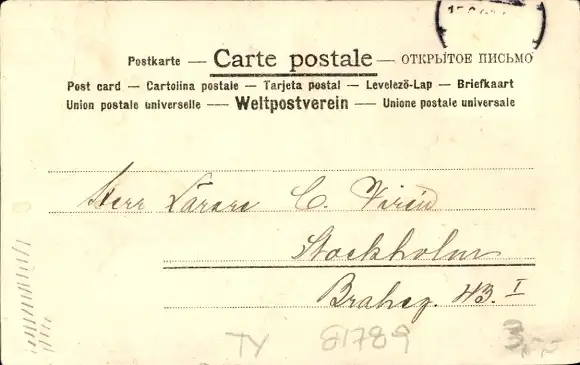 Postkarte — Carte postale — ОТКРЫТОЕ ПИСЬМО
Post card — Cartolina postale — Tarjeta postal — Levelezö-Lap — Briefkaart
Union postale universelle — Weltpostverein — Unione postale universale
Herr Lärare C. Virén
Stockholm
Braheg. 43. I
TY 81789